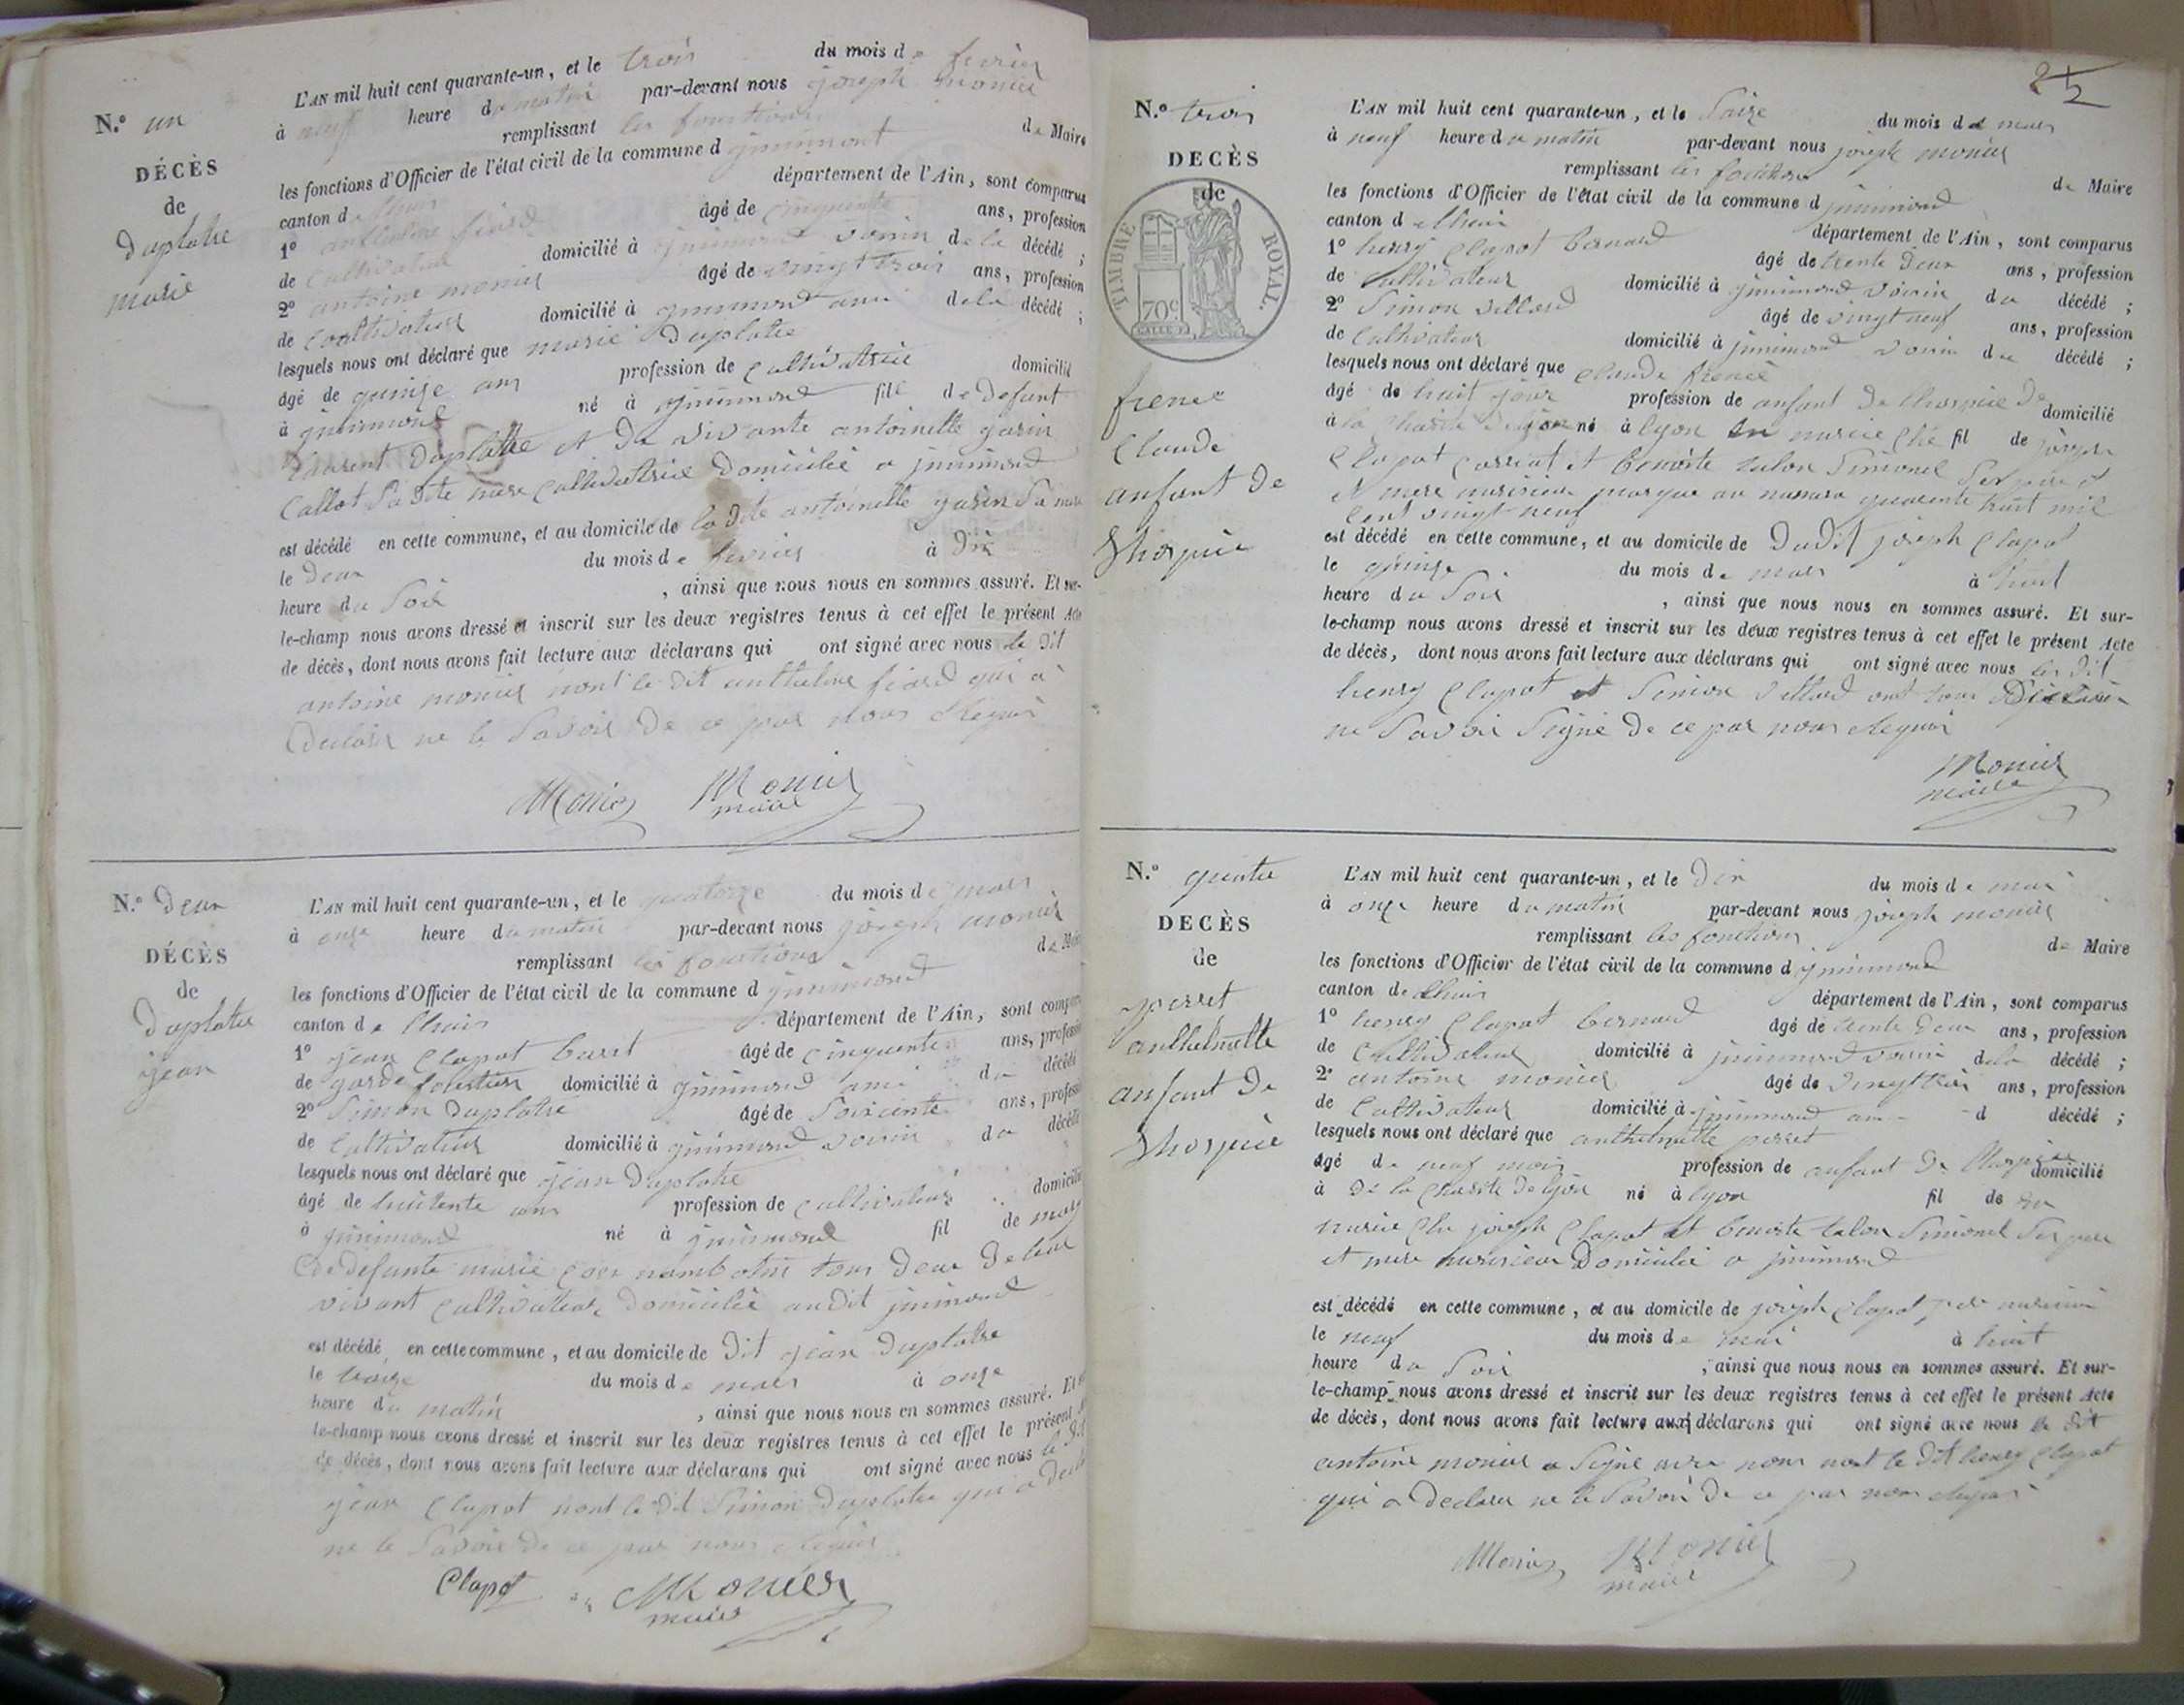 N.º un
DÉCÈS
de
Duplatre
marie
L'AN mil huit cent quarante-un, et le trois du mois de fevrier
à neuf heure du matin par-devant nous joseph monier
remplissant les fonctions de Maire
les fonctions d'Officier de l'état civil de la commune d
canton de lhuis département de l'Ain, sont comparus
1º anthelme fiard âgé de cinquante ans, profession
de Cultivateur domicilié à voisin de la décédé ;
2º antoine monier âgé de vingt trois ans, profession
de Coultivateur domicilié à ami de la décédé ;
lesquels nous ont déclaré que marie Duplatre
âgé de quinze ans profession de Cultivatrice domicilié
à né à fill de Defunt
Duplatre et De vivante antoinette garin
Callot Sa dite mere Cultivatrice Domicilié a
est décédé en cette commune, et au domicile de la dite antoinette garin Sa mere
le Deux du mois de fevrier à Dix
heure du Soir , ainsi que nous nous en sommes assuré. Et sur-
le-champ nous avons dressé et inscrit sur les deux registres tenus à cet effet le présent Acte
de décès, dont nous avons fait lecture aux déclarans qui ont signé avec nous le Dit
antoine monier nont le dit anthelme fiard qui a
Declaré ne le Savoir De ce par nous Requis
Monier Monier
maire
N.º Deux
DÉCÈS
de
Duplatre
jean
L'AN mil huit cent quarante-un, et le quatorze du mois de mars
à onze heure du matin par-devant nous joseph monier
remplissant les fonctions de Maire
les fonctions d'Officier de l'état civil de la commune d
canton de lhuis département de l'Ain, sont compar
1º jean Clapot âgé de cinquante ans, profession
de garde forestier domicilié à ami du décédé
2º Simon Duplatre âgé de Soixante ans, profess
de Cultivateur domicilié à voisin du décédé
lesquels nous ont déclaré que jean Duplatre
âgé de huitente ans profession de Cultivateur domicilié
à né à fil de
De defunte marie tous Deux De leur
vivant Cultivateur Domicilié audit
est décédé en cette commune, et au domicile de Dit jean Duplatre
le traize du mois de mars à onze
heure du matin , ainsi que nous nous en sommes assuré. Et
le-champ nous avons dressé et inscrit sur les deux registres tenus à cet effet le présent
de décès, dont nous avons fait lecture aux déclarans qui ont signé avec nous le Dit
jean Clapot nont le dit Simon Duplatre qui a
ne le Savoir De ce par nous Requis
Clapot Monier
maire
2
N.º trois
DECÈS
de
TIMBRE ROYAL.
70c
frene
Claude
anfant De
Lhospice
L'AN mil huit cent quarante-un, et le Saize du mois de mars
à neuf heure du matin par-devant nous joseph monier
remplissant les fonctions de Maire
les fonctions d'Officier de l'état civil de la commune d
canton de lhuis département de l'Ain, sont comparus
1º henry Clapot bernard âgé de trente Deux ans, profession
de Cultivateur domicilié à voisin du décédé ;
2º Simon villard âgé de vingt neuf ans, profession
de Cultivateur domicilié à voisin du décédé ;
lesquels nous ont déclaré que Claude
âgé de huit jour profession de anfant De lhospice De domicilié
à la Charité De lyon né à lyon en fil de joseph
Clapot et benoite talon Simonel Ses pere
et mere marque au numero quarente huit mil
Cent vingt neuf
est décédé en cette commune, et au domicile de Dudit joseph Clapot
le quinze du mois de mars à huit
heure du Soir , ainsi que nous nous en sommes assuré. Et sur-
le-champ nous avons dressé et inscrit sur les deux registres tenus à cet effet le présent Acte
de décès, dont nous avons fait lecture aux déclarans qui ont signé avec nous les Dit
henry Clapot et Simon villard ont tous Declaré
ne Savoir Signé De ce par nous Requis
Monier
maire
N.º quatre
DECÈS
de
perret
anthelmette
anfant De
Lhospice
L'AN mil huit cent quarante-un, et le Dix du mois de mai
à onze heure du matin par-devant nous joseph monier
remplissant les fonctions de Maire
les fonctions d'Officier de l'état civil de la commune d
canton de lhuis département de l'Ain, sont comparus
1º henry Clapot bernard âgé de trente Deux ans, profession
de Cultivateur domicilié à voisin de la décédé ;
2º antoine monier âgé de vingt trois ans, profession
de Cultivateur domicilié à ami d décédé ;
lesquels nous ont déclaré que anthelmette perret
âgé de neuf mois profession de anfant De lhospice domicilié
à De la Charité De lyon né à lyon fil de
joseph Clapot et benoite talon Simonel Ses pere
et mere Domicilié a
est décédé en cette commune, et au domicile de joseph Clapot
le neuf du mois de mai à huit
heure du Soir , ainsi que nous nous en sommes assuré. Et sur-
le-champ nous avons dressé et inscrit sur les deux registres tenus à cet effet le présent Acte
de décès, dont nous avons fait lecture aux déclarans qui ont signé avec nous le Dit
antoine monier a Signé avec nous nont le Dit henry Clapot
qui a Declaré ne le Savoir De ce par nous Requis
Monier Monier
maire